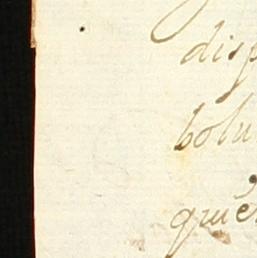 disp
bolu
qué